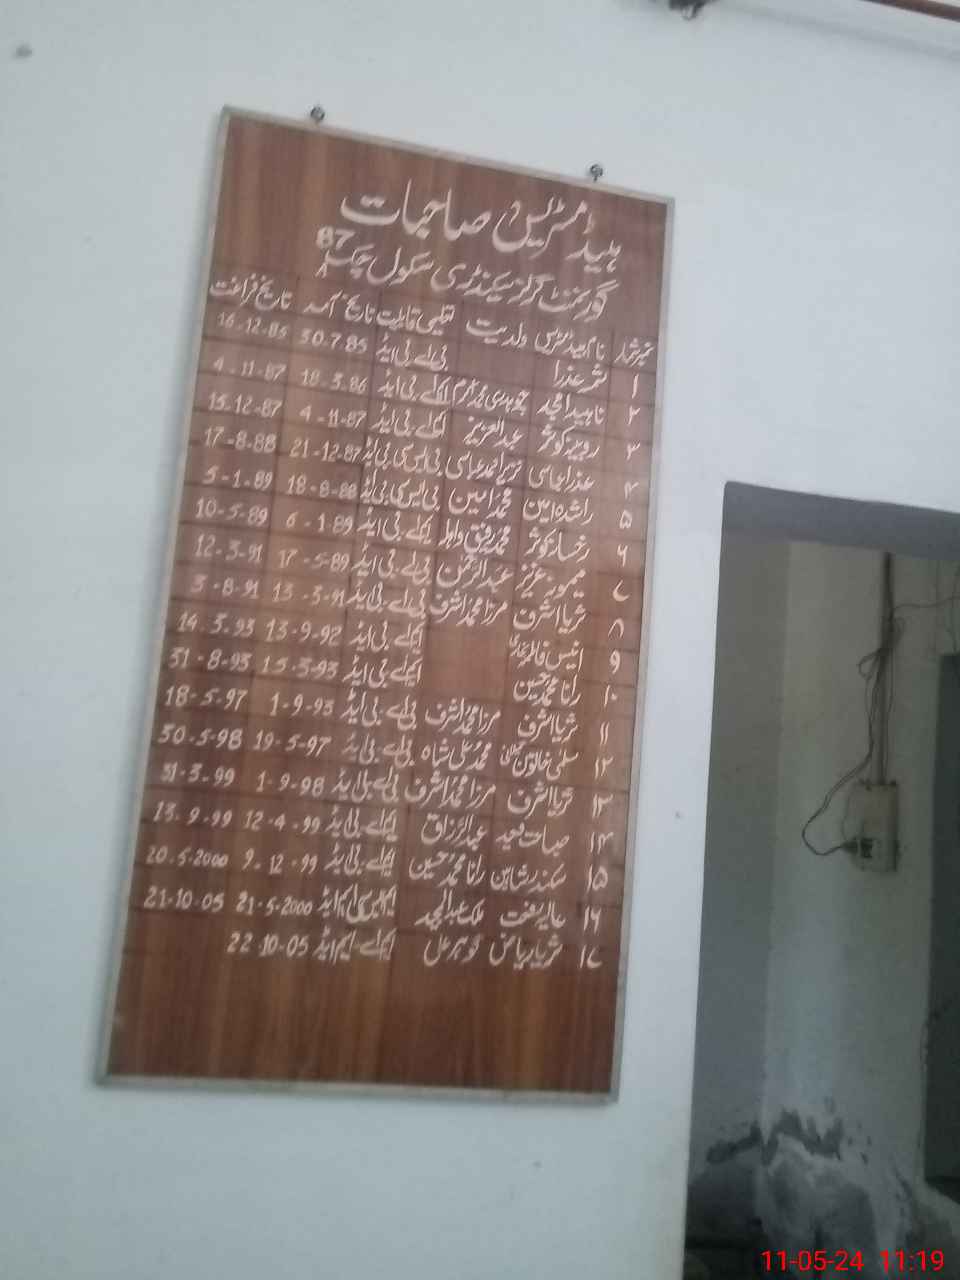 ہیڈ مسٹریس صاحبات
گورنمنٹ گرلز سیکنڈری سکول چک 87
نمبر شمار نام ہیڈ مسٹریس ولدیت تعلیمی قابلیت تاریخ آمد تاریخ فراغت
۱ ثمر عذرا بی اے بی ایڈ 30.7.85 16.12.85
۲ ناہید امجد چوہدری محمد اکرم ایم اے بی ایڈ 18.3.86 4.11.87
۳ روبینہ کوثر عبدالعزیز ایم اے بی ایڈ 4-11-87 15.12-87
۴ عذرا عباسی نذیر احمد عباسی بی ایس سی بی ایڈ 21-12-87 17-8-88
۵ راشدہ امین محمد امین بی ایس سی بی ایڈ 18-8-88 5-1-89
۶ رخسانہ کوثر محمد رفیق ایم اے بی ایڈ 6-1-89 10-5-89
۷ میمونہ عزیز عبدالرحمٰن بی اے بی ایڈ 17-5-89 12-3-91
۸ ثریا اشرف مرزا محمد اشرف بی اے بی ایڈ 13-3-91 3-8-91
۹ انیس فاطمہ ایم اے بی ایڈ 13-9-92 14.3.93
۱۰ رانا محمد حسین ایم اے بی ایڈ 15-3-93 31-8-93
۱۱ ثریا اشرف مرزا محمد اشرف بی اے بی ایڈ 1-9-93 18-5-97
۱۲ سلمی خاتون محمد علی شاہ بی اے بی ایڈ 19-5-97 30.5-98
۱۳ ثریا اشرف مرزا محمد اشرف بی اے بی ایڈ 1-9-98 31-3-99
۱۴ عبدالرزاق ایم اے بی ایڈ 12-4-99 13.9-99
۱۵ سکندر شاہین رانا محمد حسین ایم اے بی ایڈ 9.12-99 20.5-2000
۱۶ ملک عبدالمجید ایم ایس سی ایم ایڈ 21-5-2000 21-10-05
۱۷ ثریا ریاض گوہر علی ایم اے ایم ایڈ 22.10-05
11-05-24 11:19